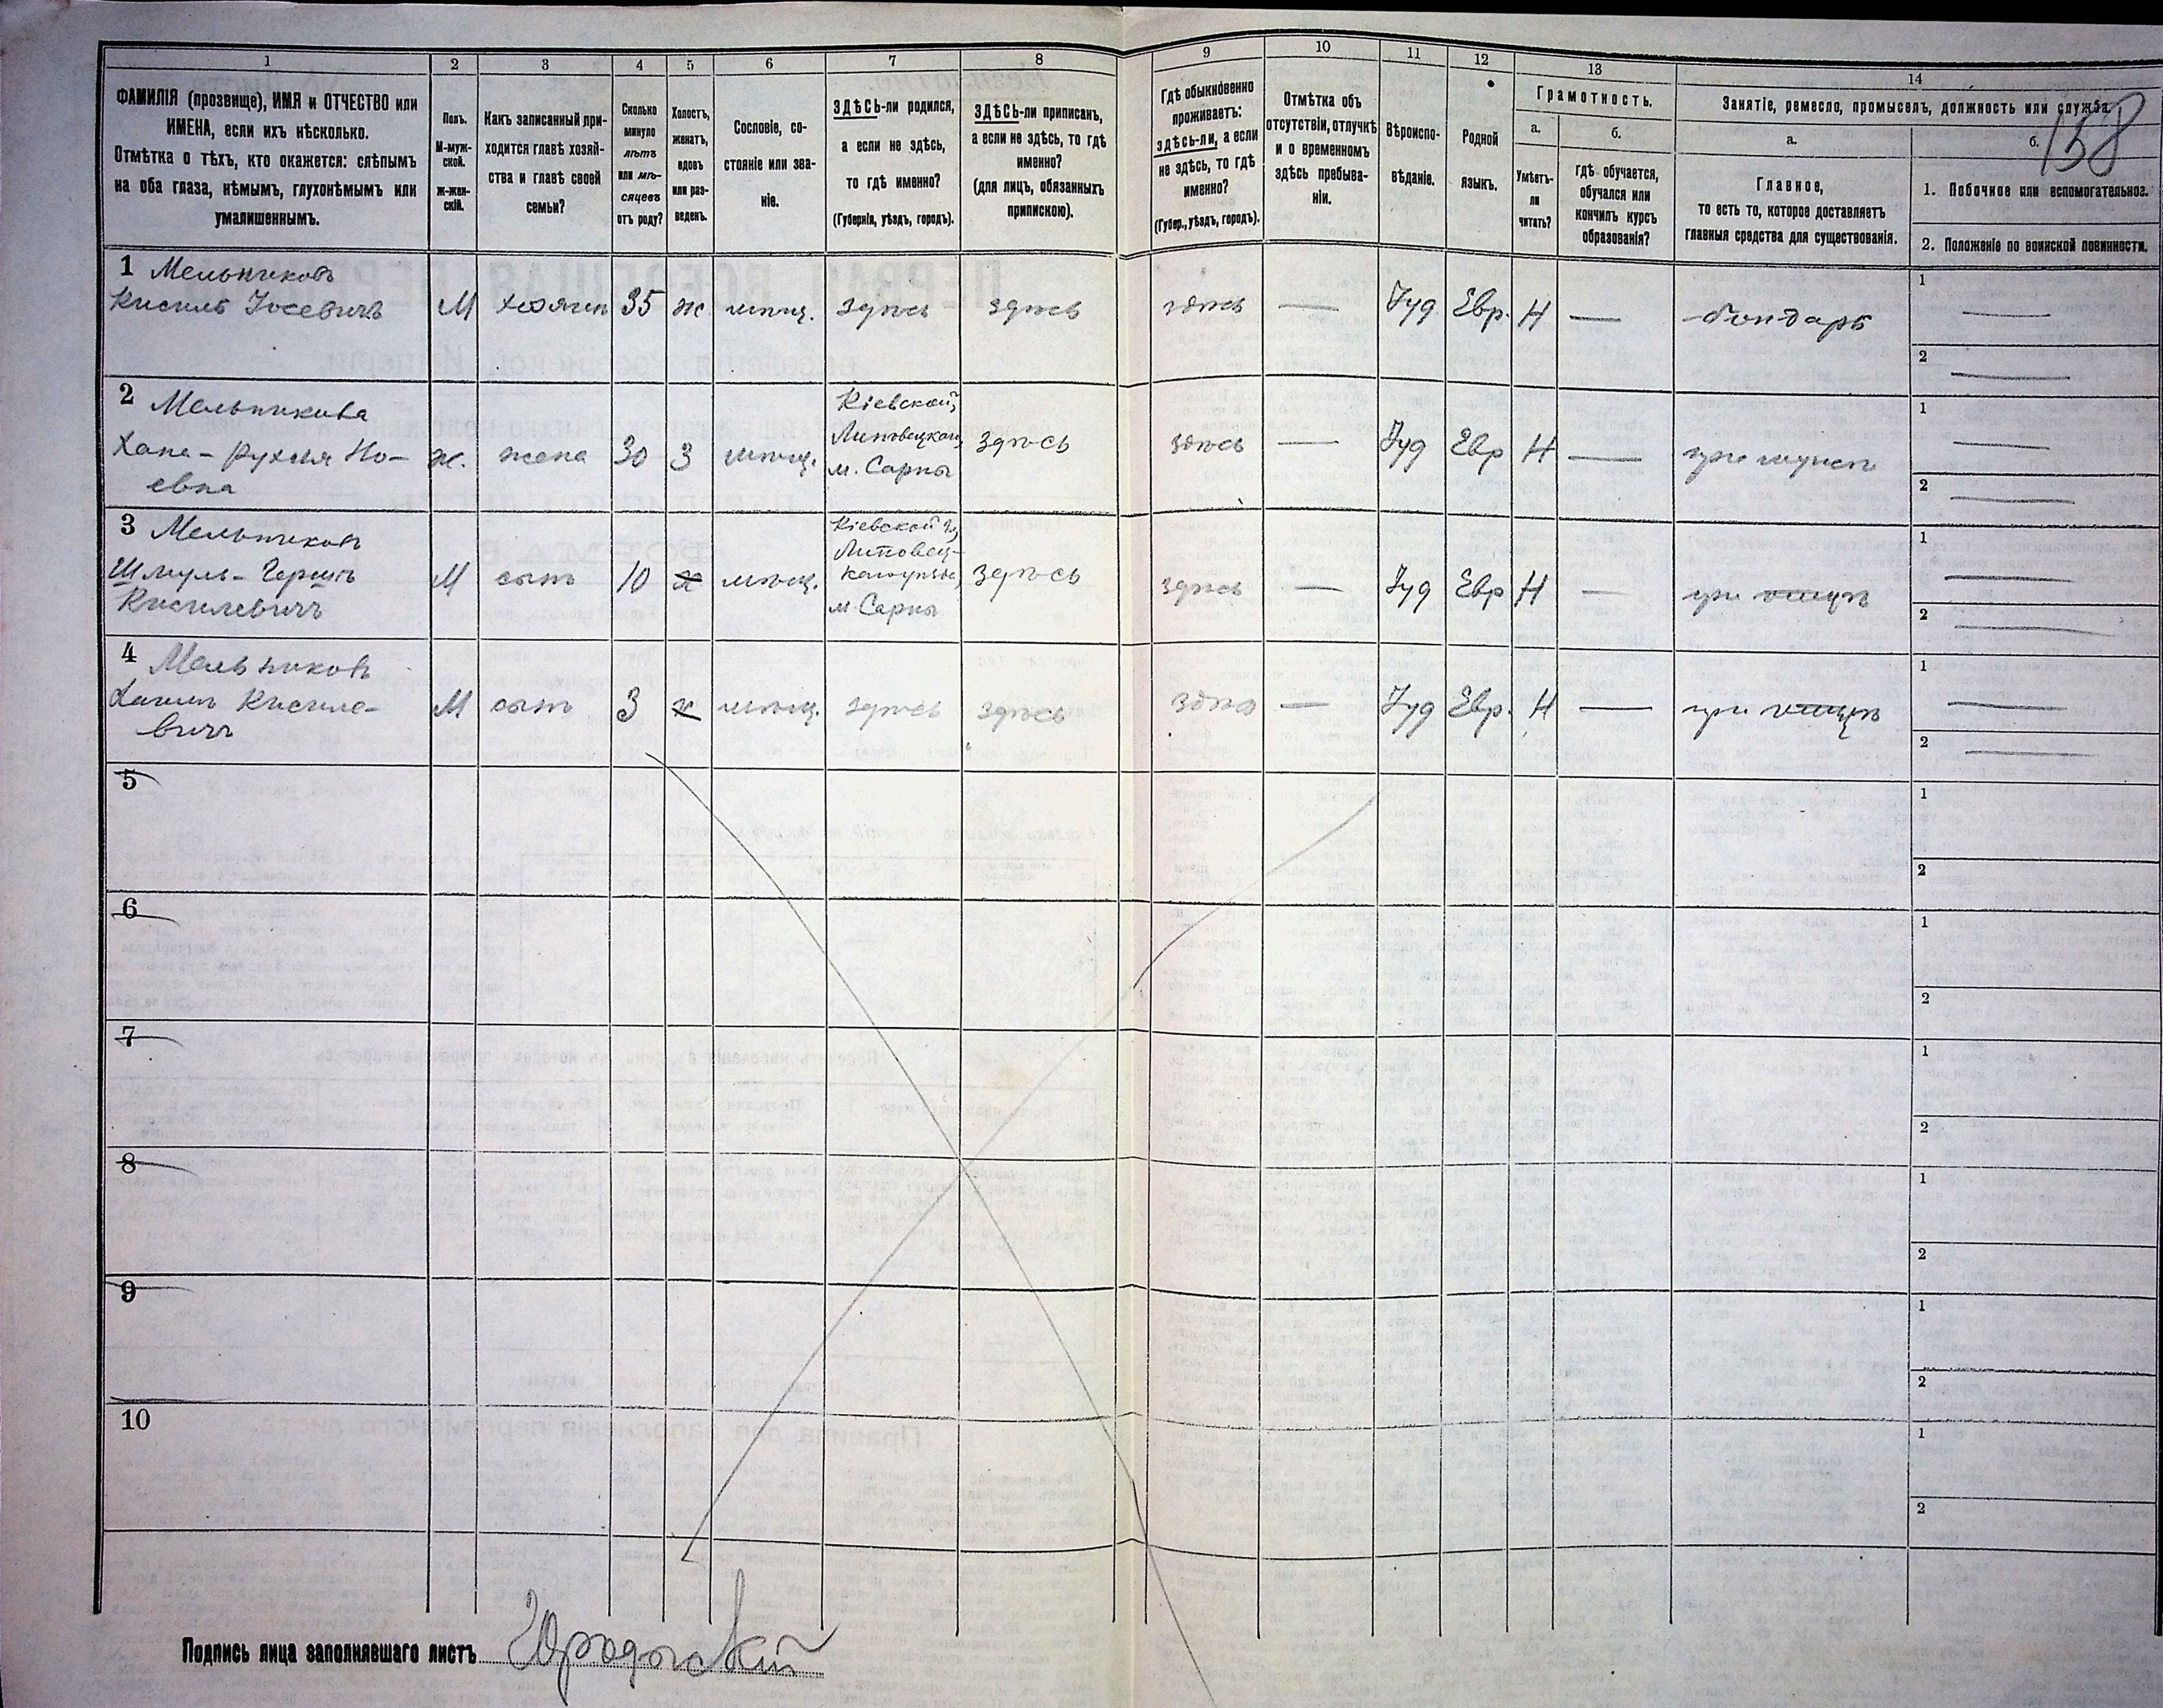 1 2 3 4 5 6 7 8 9 10 11 12 13 14
ФАМИЛІЯ (прозвище), ИМЯ и ОТЧЕСТВО или
ИМЕНА, если ихъ нѣсколько.
Отмѣтка о тѣхъ, кто окажется: слѣпымъ
на оба глаза, нѣмымъ, глухонѣмымъ или
умалишеннымъ.
Полъ.
М-муж-
ской.
ж-жен-
скій.
Какъ записанный при-
ходится главѣ хозяй-
ства и главѣ своей
семьи?
Сколько
минуло
лѣтъ
или мѣ-
сяцевъ
отъ роду?
Холостъ,
женатъ,
вдовъ
или раз-
веденъ.
Сословіе, со-
стояніе или зва-
ніе.
ЗДѢСЬ-ли родился,
а если не здѣсь,
то гдѣ именно?
(Губернія, уѣздъ, городъ).
ЗДѢСЬ-ли приписанъ,
а если не здѣсь, то гдѣ
именно?
(для лицъ, обязанныхъ
припискою).
Гдѣ обыкновенно
проживаетъ:
здѣсь-ли, а если
не здѣсь, то гдѣ
именно?
(Губер., уѣздъ, городъ).
Отмѣтка объ
отсутствіи, отлучкѣ
и о временномъ
здѣсь пребыва-
ніи.
Вѣроиспо-
вѣданіе.
Родной
языкъ.
Грамотность.
а.
Умѣетъ-
ли
читать?
б.
гдѣ обучается,
обучался или
кончилъ курсъ
образованія?
Занятіе, ремесло, промыселъ, должность или служба.
158
а.
Главное,
то есть то, которое доставляетъ
главныя средства для существованія.
б.
1. Побочное или вспомогательное.
2. Положеніе по воинской повинности.
1 Мельниковъ
Кисиль Іосевичъ М хозяинъ 35 ж мѣщ. здѣсь здѣсь здѣсь — Іуд Евр. Н — бондарь 1 — 2 —
2 Мельникова
Хана-Рухля Но-
евна ж. жена 30 З мѣщ.
Кіевской,
Липовецкаго,
м. Сарны
здѣсь здѣсь — Іуд Евр Н — при мужѣ 1 — 2 —
3 Мельниковъ
Шмуль-Гершъ
Кисилевичъ М сынъ 10 х мѣщ.
Кіевской г.,
Липовец-
каго уѣзда,
м. Сарны
здѣсь здѣсь — Іуд Евр Н — при отцѣ 1 — 2 —
4 Мельниковъ
Хаимъ Кисиле-
вичъ М сынъ 3 х мѣщ. здѣсь здѣсь здѣсь — Іуд Евр. Н — при отцѣ 1 — 2 —
5 1 2
6 1 2
7 1 2
8 1 2
9 1 2
10 1 2
Подпись лица заполнявшаго листъ